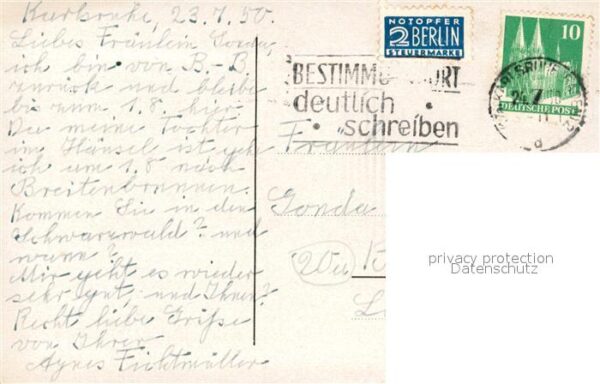 Karlsruhe, 23.7.50.
Liebes Fräulein Gonda,
ich bin von B.-B.
zurück und bleibe
bis zum 1.8. hier.
Da meine Tochter
im Häusel ist geh
ich am 1.8 nach
Breitenbrunnen.
Kommen Sie in den
Schwarzwald? und
wann?
Mir geht es wieder
sehr gut, und Ihnen?
Recht liebe Grüße
von Ihrer
Agnes Fichtmüller
NOTOPFER
2 BERLIN
STEUERMARKE
BESTIMMUNGSORT
deutlich
schreiben
10
DEUTSCHE POST
KARLSRUHE
d
Fräulein
Gonda
20a B
privacy protection
Datenschutz